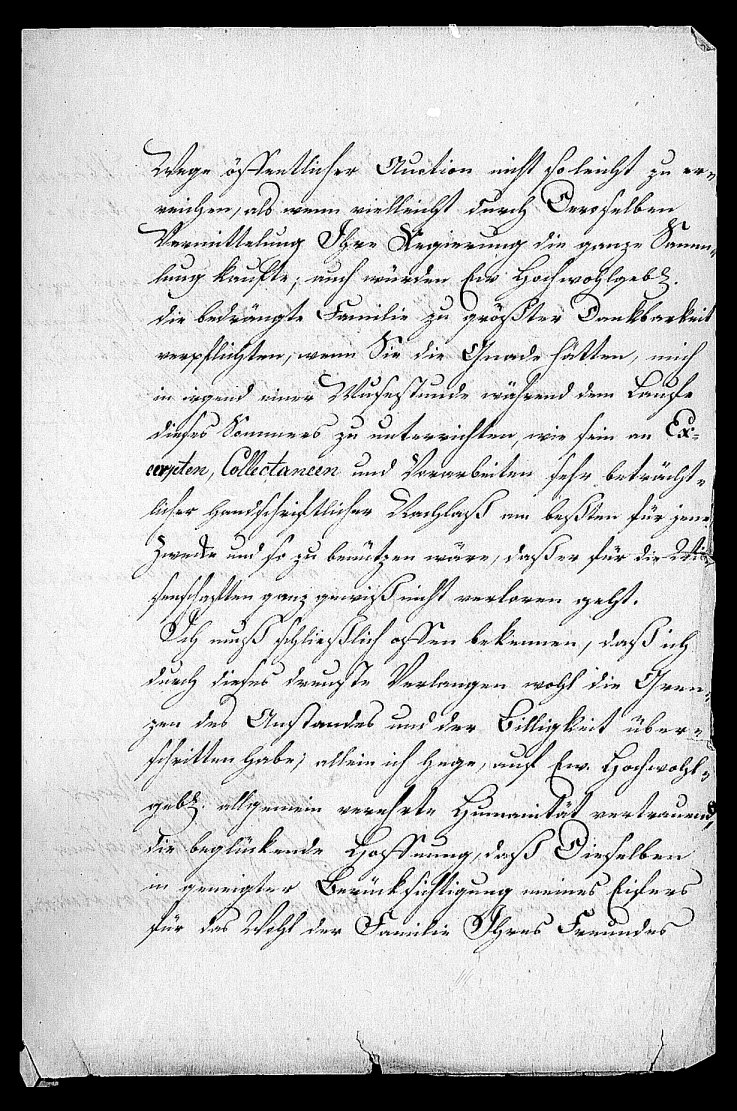 Wege öffentlicher Auction nicht so leicht zu er-
reichen, als wenn vielleicht durch Deroselben
Vermittelung Ihre Regierung die ganze Samm-
lung kaufte; auch würden Ew. Hochwohlgeb.
die bedrängte Familie zu größter Dankbarkeit
verpflichten, wenn Sie die Gnade hätten, mich
in irgend einer Musestunde während dem Laufe
dieses Sommers zu unterrichten, wie sein an Ex-
cerpten, Collectaneen und Vorarbeiten sehr beträcht-
licher handschriftlicher Nachlaß am beßten für jene
Zwecke und so zu benützen wäre, daß er für die Wis-
senschaften ganz gewiß nicht verloren geht.
Ich muß schließlich offen bekennen, daß ich
durch dieses dreuste Verlangen wohl die Gren-
zen des Anstandes und der Billigkeit über-
schritten habe; allein ich hege, auf Ew. Hochwohl-
geb. allgemein verehrte Humanität vertrauend,
die beglückende Hoffnung, daß Dieselben
in geneigter Berücksichtigung meines Eifers
für das Wohl der Familie Ihres Freundes